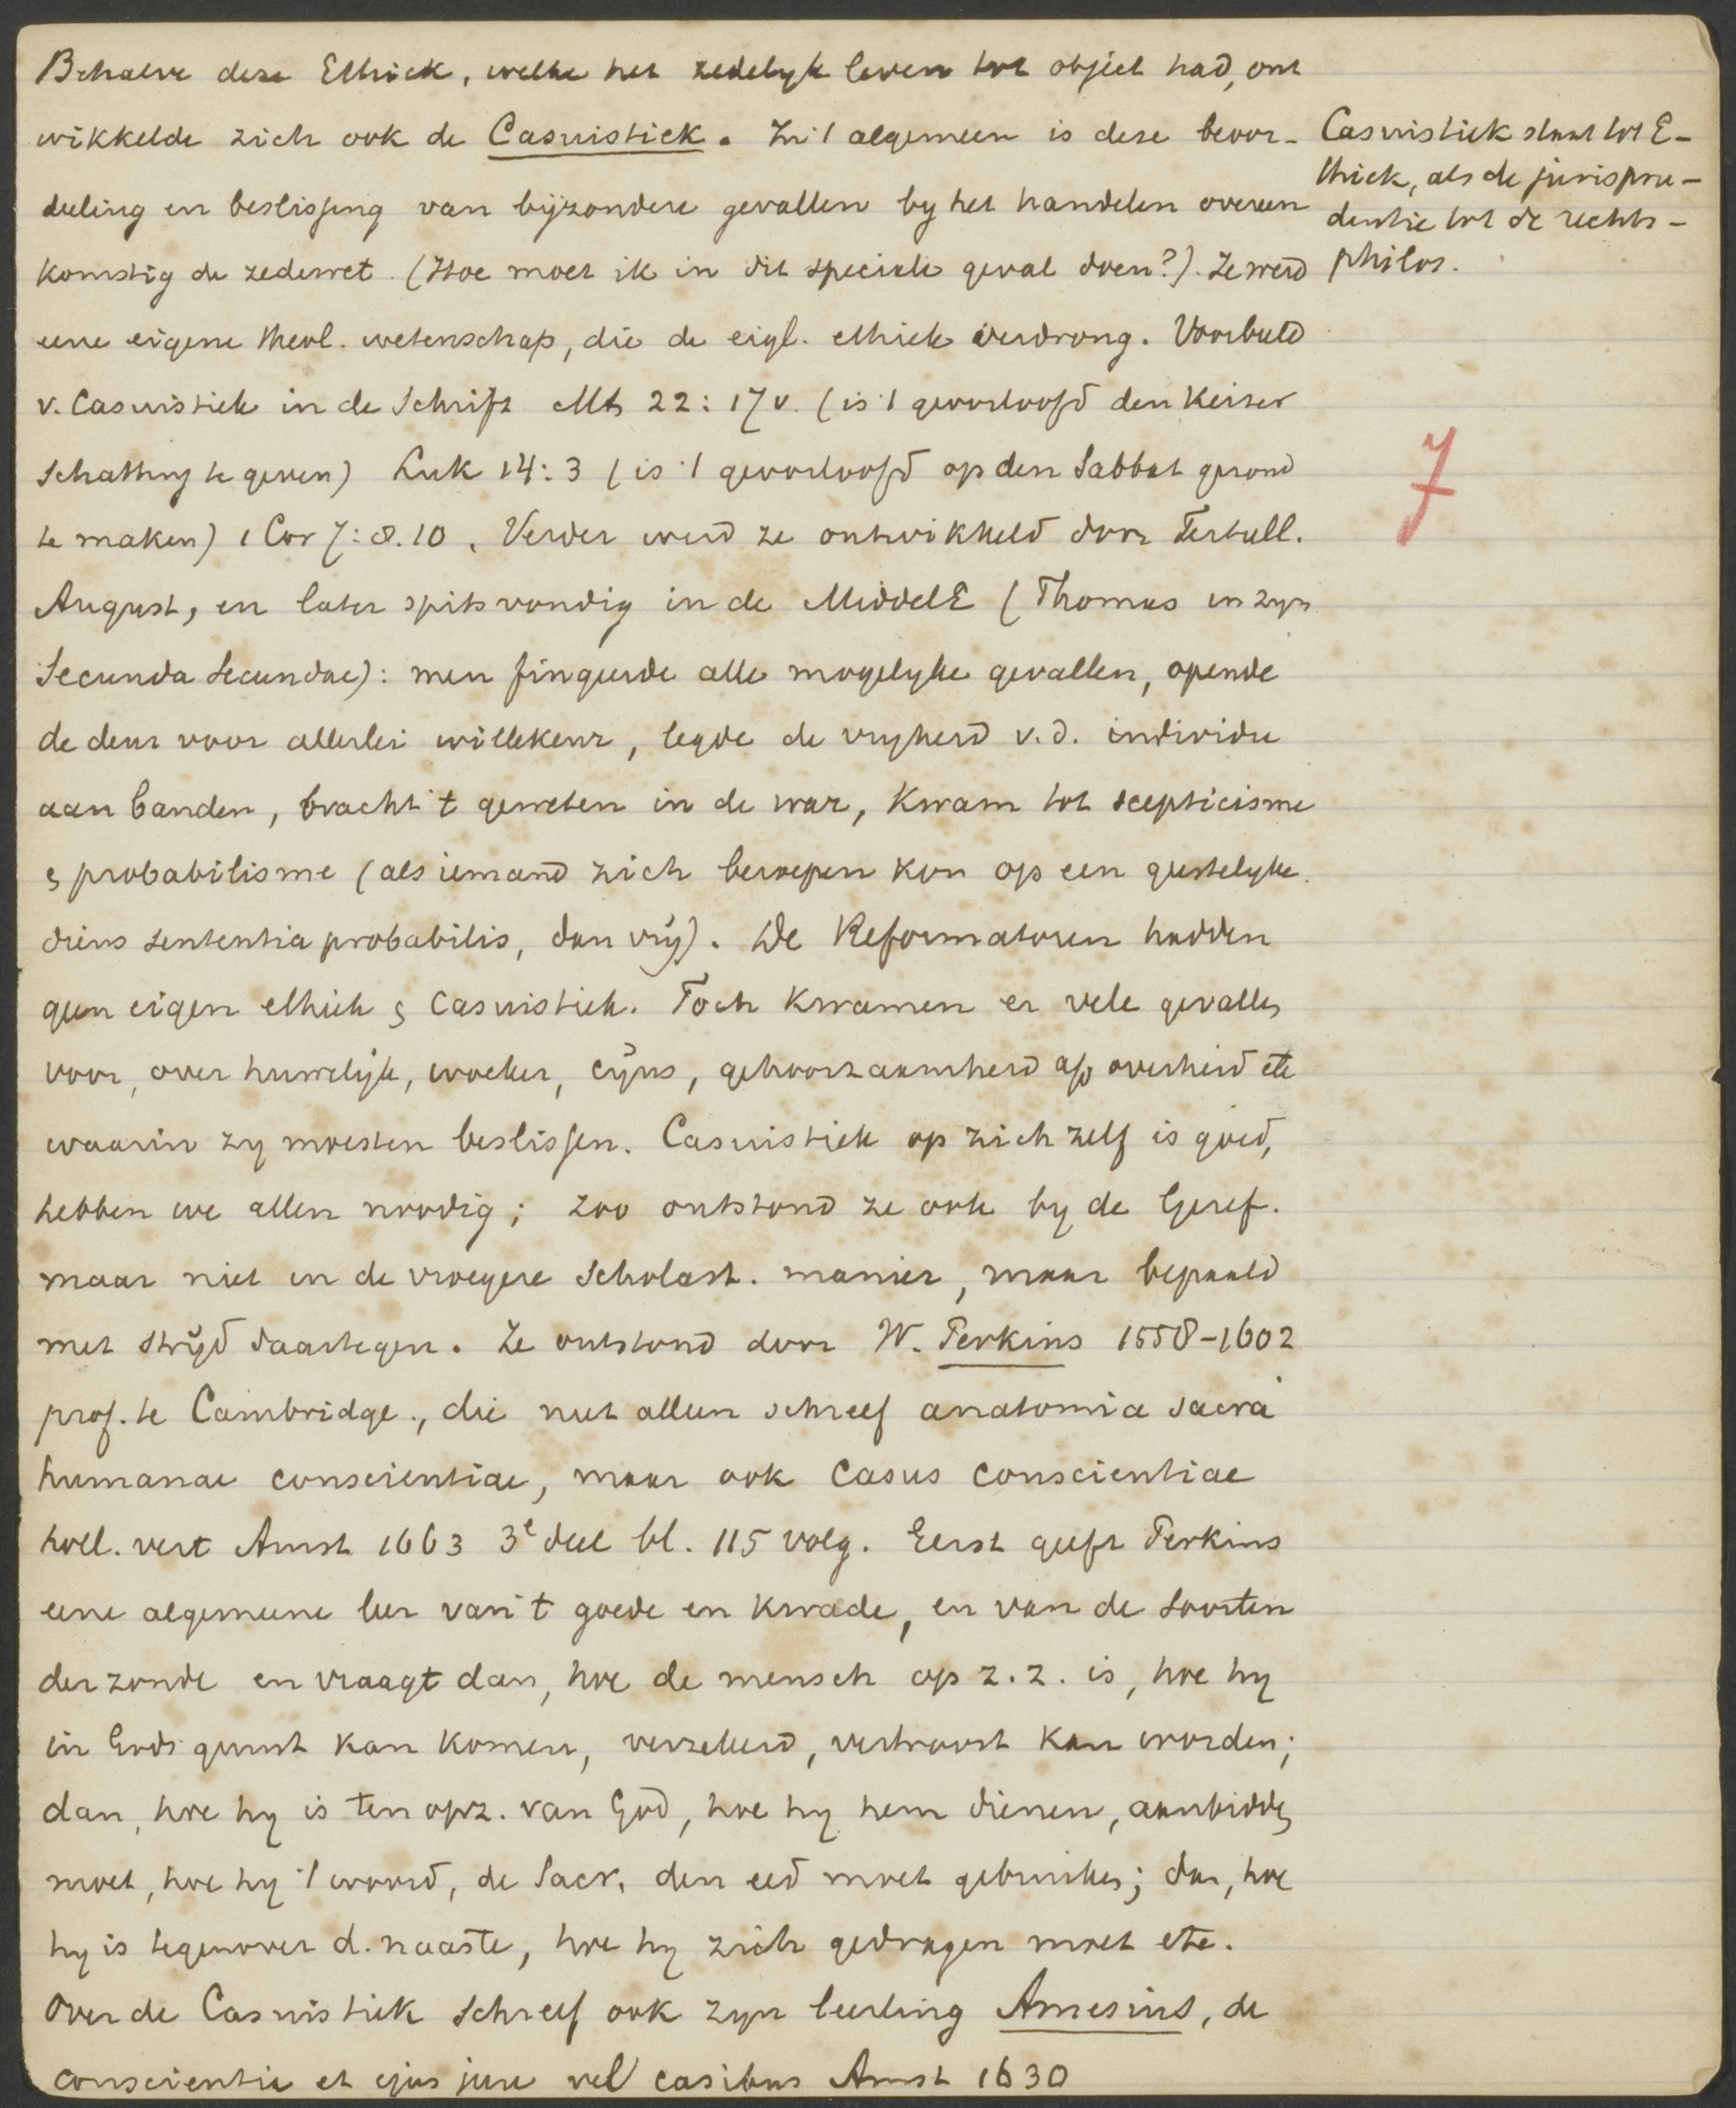 Behalve deze Ethiek, welke het zedelyk leven tot object had, ont
wikkelde zich ook de Casuistiek. In 't algemeen is deze beoor-
deeling en beslissing van byzondere gevallen by het handelen overeen
komstig de zedewet. (Hoe moet ik in dit speciale geval doen?). Ze werd
eene eigene theol. wetenschap, die de eigl. ethiek verdrong. Voorbeeld
v. Casuistiek in de Schrift Mt 22:17v. (is 't geoorloofd den Keiser
schatting te geven) Luk 14:3 (is 't geoorloofd op den Sabbat gezond
te maken) 1 Cor 7:8.10. Verder werd ze ontwikkeld door Tertull.
August, en later spitsvondig in de MiddelE (Thomas in zyn
Secunda Secundae): men fingeerde alle mogelyke gevallen, opende
de deur voor allerlei willekeur, legde de vryheid v.d. individu
aan banden, bracht 't geweten in de war, kwam tot scepticisme
& probabilisme (als iemand zich beroepen kon op een geestelyke
diens sententia probabilis, dan vrij). De Reformatoren hadden
geen eigen ethiek & casuistiek. Toch kwamen er vele gevallen
voor, over huwelijk, woeker, cijns, gehoorzaamheid a/d overheid etc
waarin zy moesten beslissen. Casuistiek op zich zelf is goed,
hebben we allen noodig; zoo ontstond ze ook by de Geref.
maar niet in de vroegere Scholast. manier, maar bepaald
met strijd daartegen. Ze ontstond door W. Perkins 1558-1602
prof. te Cambridge., die niet alleen schreef anatomia sacra
humanae conscientiae, maar ook Casus Conscientiae
holl. vert Amst 1663 3e deel bl. 115 volg. Eerst geeft Perkins
eene algemeene leer van 't goede en kwade, en van de soorten
der zonde en vraagt dan, hoe de mensch op z.z. is, hoe hy
in Gods gunst kan komen, verzekerd, vertroost kan worden;
dan, hoe hy is ten opz. van God, hoe hy hem dienen, aanbidden
moet, hoe hy 't woord, de Sacr. den eed moet gebruiken; dan, hoe
hy is tegenover d. naaste, hoe hy zich gedragen moet etc.
Over de Casuistiek schreef ook zyn leerling Amesius, de
conscientia et ejus jure vel casibus Amst 1630
Casuistiek staat tot E-
thiek, als de jurispru-
dentie tot de rechts-
philos.
7